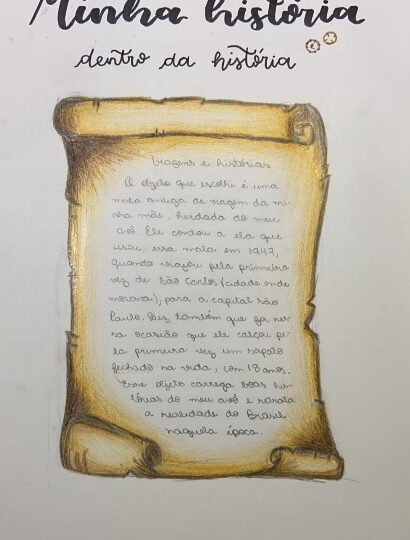 Minha história
dentro da história
Viagens e histórias
O objeto que escolhi é uma
mala antiga de viagem da mi-
nha mãe, herdada do meu
avô. Ele contou a ela que
usou essa mala em 1947,
quando viajou pela primeira
vez de São Carlos (cidade onde
morava), para a capital São
Paulo. Diz também que foi nes-
sa ocasião que ele calçou pe-
la primeira vez um sapato
fechado na vida, com 18 anos.
Esse objeto carrega boas his-
tórias do meu avô e retrata
a realidade do Brasil
naquela época.